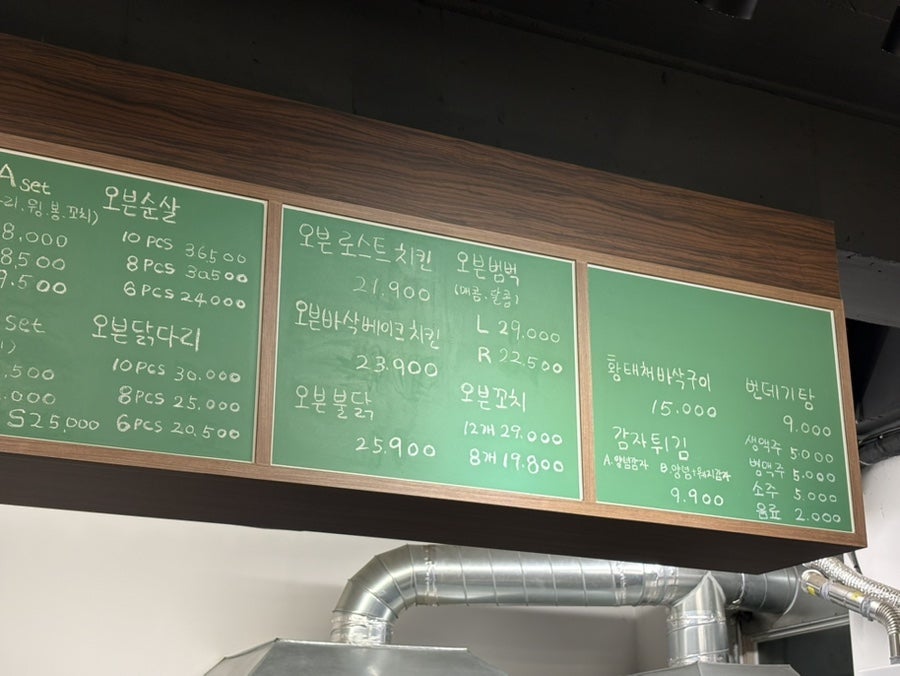 A set
리.윙.봉.꼬치)
8,000
8,500
9.500
set
)
.500
.000
S 25,000
오븐순살
10 PCS 36500
8 PCS 30500
6 PCS 24,000
오븐닭다리
10 PCS 30.000
8 PCS 25,000
6 PCS 20,500
오븐로스트치킨
21.900
오븐바삭베이크치킨
23.900
오븐불닭
25.900
오븐범벅
(매콤.달콤)
L 29.000
R 22,500
오븐꼬치
12개 29,000
8개 19.800
황태채바삭구이
15.000
감자튀김
A.양념감자 B.양념+
9.900
번데기탕
9.000
생맥주 5.000
병맥주 5.000
소주 5.000
음료 2.000